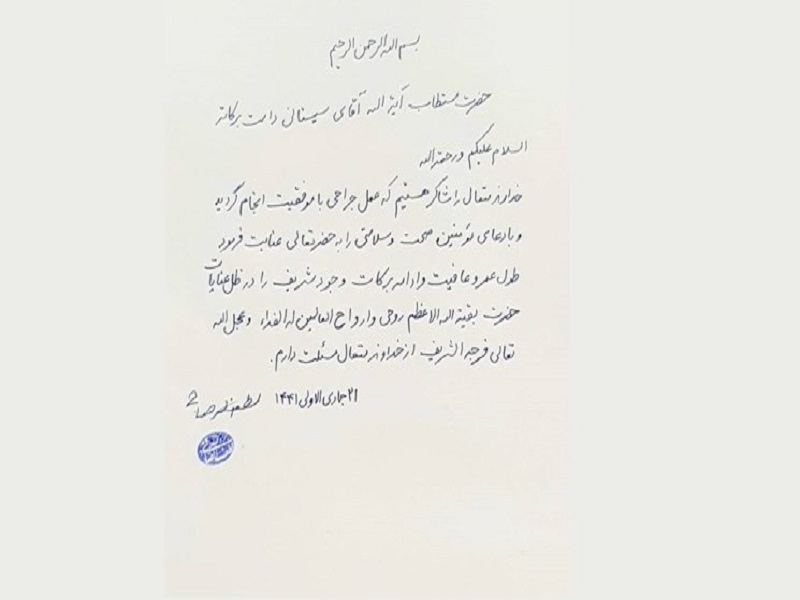 بسم الله الرحمن الرحیم
حضرت مستطاب آیة الله آقای سیستانی دامت برکاته
السلام علیکم ورحمة الله
خداوند متعال را شاکر هستیم که عمل جراحی با موفقیت انجام گردید
و با دعای مؤمنین صحت و سلامتی را به حضرتعالی عنایت فرمود
طول عمر و عافیت و ادامه برکات وجود شریف را در ظل عنایات
حضرت بقیة الله الاعظم روحی و ارواح العالمین له الفداء و عجل الله
تعالی فرجه الشریف از خداوند متعال مسئلت دارم.
۲۱ جمادی الاولی ۱۴۴۱ لطف الله صافی